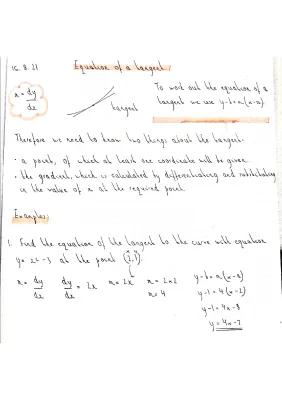 16.8.21 Equation of a tangent
m = dy/dx
tangent
To work out the equation of a
tangent we use y-b=m(x-a).
Therefore we need to know two things about the tangent:
• a point, of which at least one coordinate will be given.
• the gradient, which is calculated by differentiating and substituting
in the value of x at the required point.
Examples:
1. Find the equation of the tangent to the curve with equation
y = x²-3 at the point (2,1).
m = dy/dx dy/dx = 2x m = 2x m = 2×2 y-b = m(x-a)
m = 4 y-1 = 4(x-2)
y-1 = 4x-8
y = 4x-7